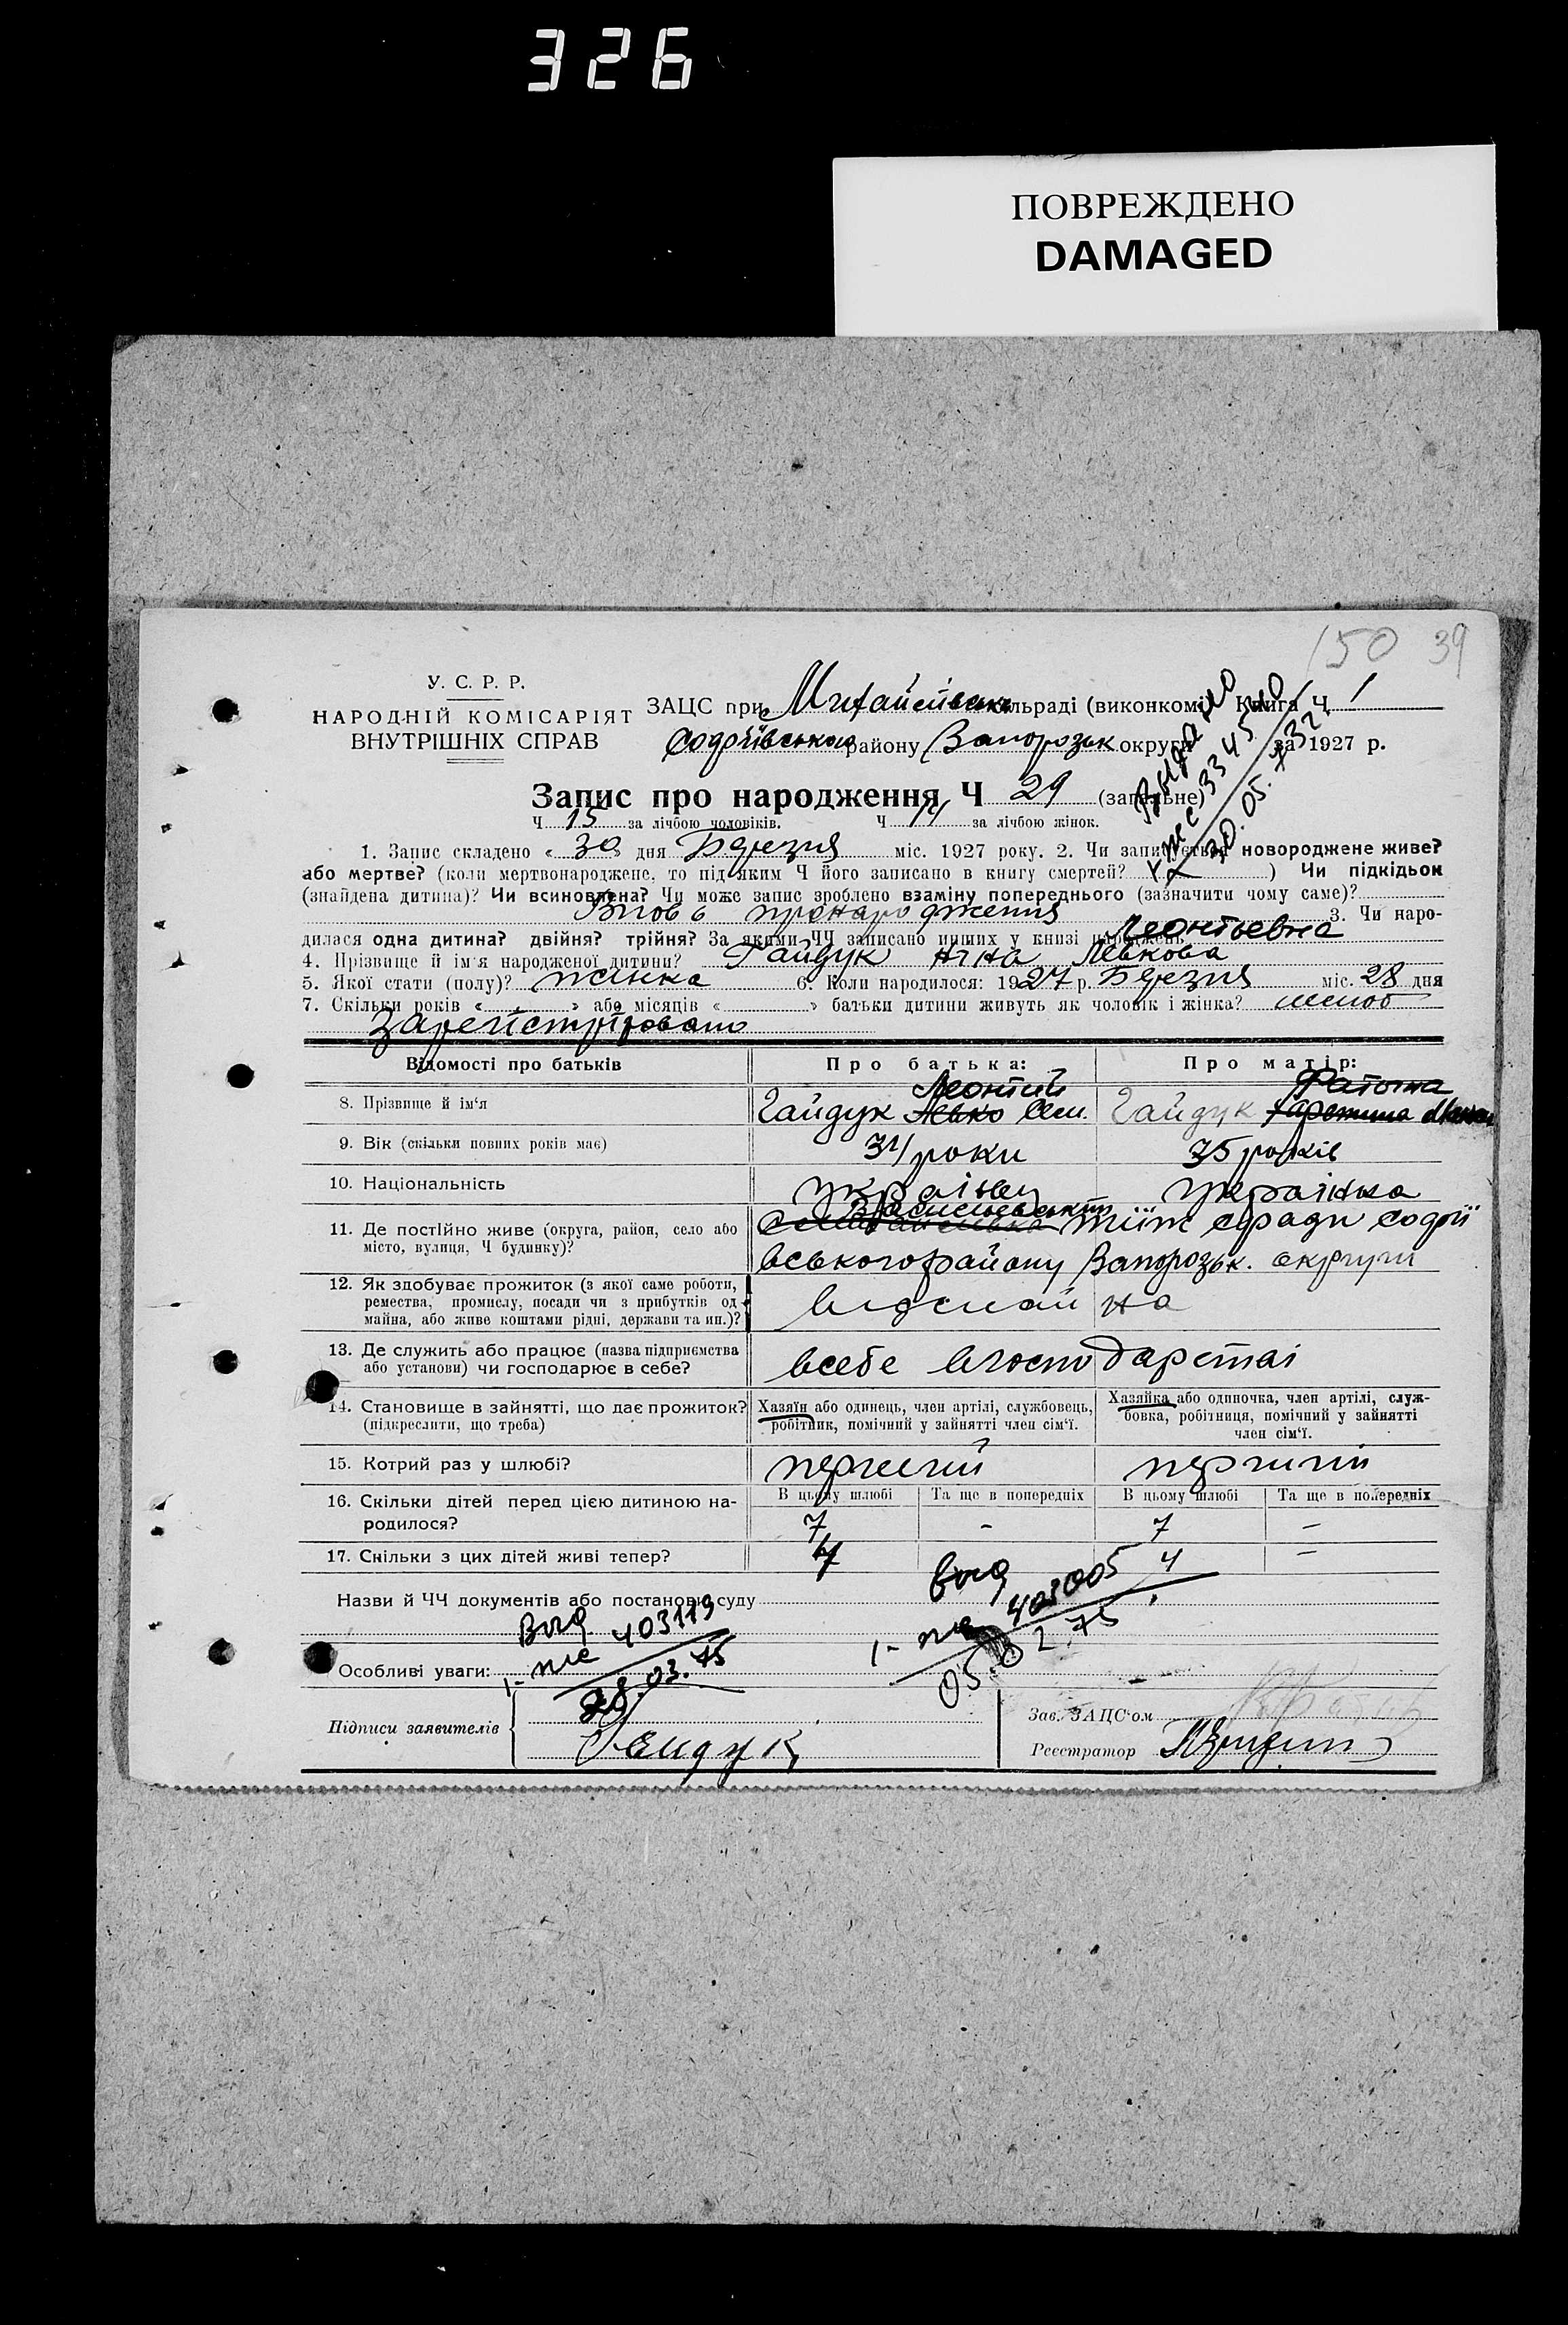 326
ПОВРЕЖДЕНО
DAMAGED
150 39
У. С. Р. Р.
НАРОДНІЙ КОМІСАРІЯТ
ВНУТРІШНІХ СПРАВ
ЗАЦС при Михайлівськ сільраді (виконкомі) Книга Ч 1
району Запорозьк округи за 1927 р.
Видано
30.05.73
Запис про народження Ч 29 (загальне)
Ч 15 за лічбою чоловіків. Ч 14 за лічбою жінок.
1. Запис складено « 30 » дня Березня міс. 1927 року. 2. Чи записується новороджене живе?
або мертве? (коли мертвонароджене, то під яким Ч його записано в книгу смертей? ) Чи підкідьок
(знайдена дитина)? Чи всиновлена? Чи може запис зроблено взаміну попереднього (зазначити чому саме)?
Вновь 3. Чи наро-
дилася одна дитина? двійня? трійня? За якими ЧЧ записано инших у книзі народжень Леонтьевна
4. Прізвище й ім'я народженої дитини? Гайдук Нина Левкова
5. Якої стати (полу)? жінка 6. Коли народилося: 1927 р. Березня міс. 28 дня
7. Скільки років « » або місяців « » батьки дитини живуть як чоловік і жінка? шлюб
Зарегістріровано
Відомості про батьків Про батька: Про матір:
Леонтий
8. Прізвище й ім'я Гайдук Левко Гайдук
9. Вік (скільки повних років має) 34 роки 35 років
10. Національність українец українка
Васильевський
11. Де постійно живе (округа, район, село або
місто, вулиця, Ч будинку)?
вського району Запорозьк. округи
12. Як здобуває прожиток (з якої саме роботи,
ремества, промислу, посади чи з прибутків од
майна, або живе коштами рідні, держави та ин.)?
13. Де служить або працює (назва підприємства
або установи) чи господарює в себе?
всебе вгосподарстві
14. Становище в зайнятті, що дає прожиток?
(підкреслити, що треба)
Хазяїн або одинець, член артілі, службовець,
робітник, помічний у зайнятті член сім'ї.
Хазяйка або одиночка, член артілі, служ-
бовка, робітниця, помічний у зайнятті
член сім'ї.
15. Котрий раз у шлюбі? перший перший
16. Скільки дітей перед цією дитиною на-
родилося?
В цьому шлюбі Та ще в попередніх В цьому шлюбі Та ще в попередніх
7 - 7 -
17. Скільки з цих дітей живі тепер? 4 4 -
Назви й ЧЧ документів або постанови суду
Выд 403119
28.03.75
выд 403005
05.02.75
Особливі уваги:
Підписи заявителів Гайдук
Зав. ЗАЦС'ом
Реєстратор